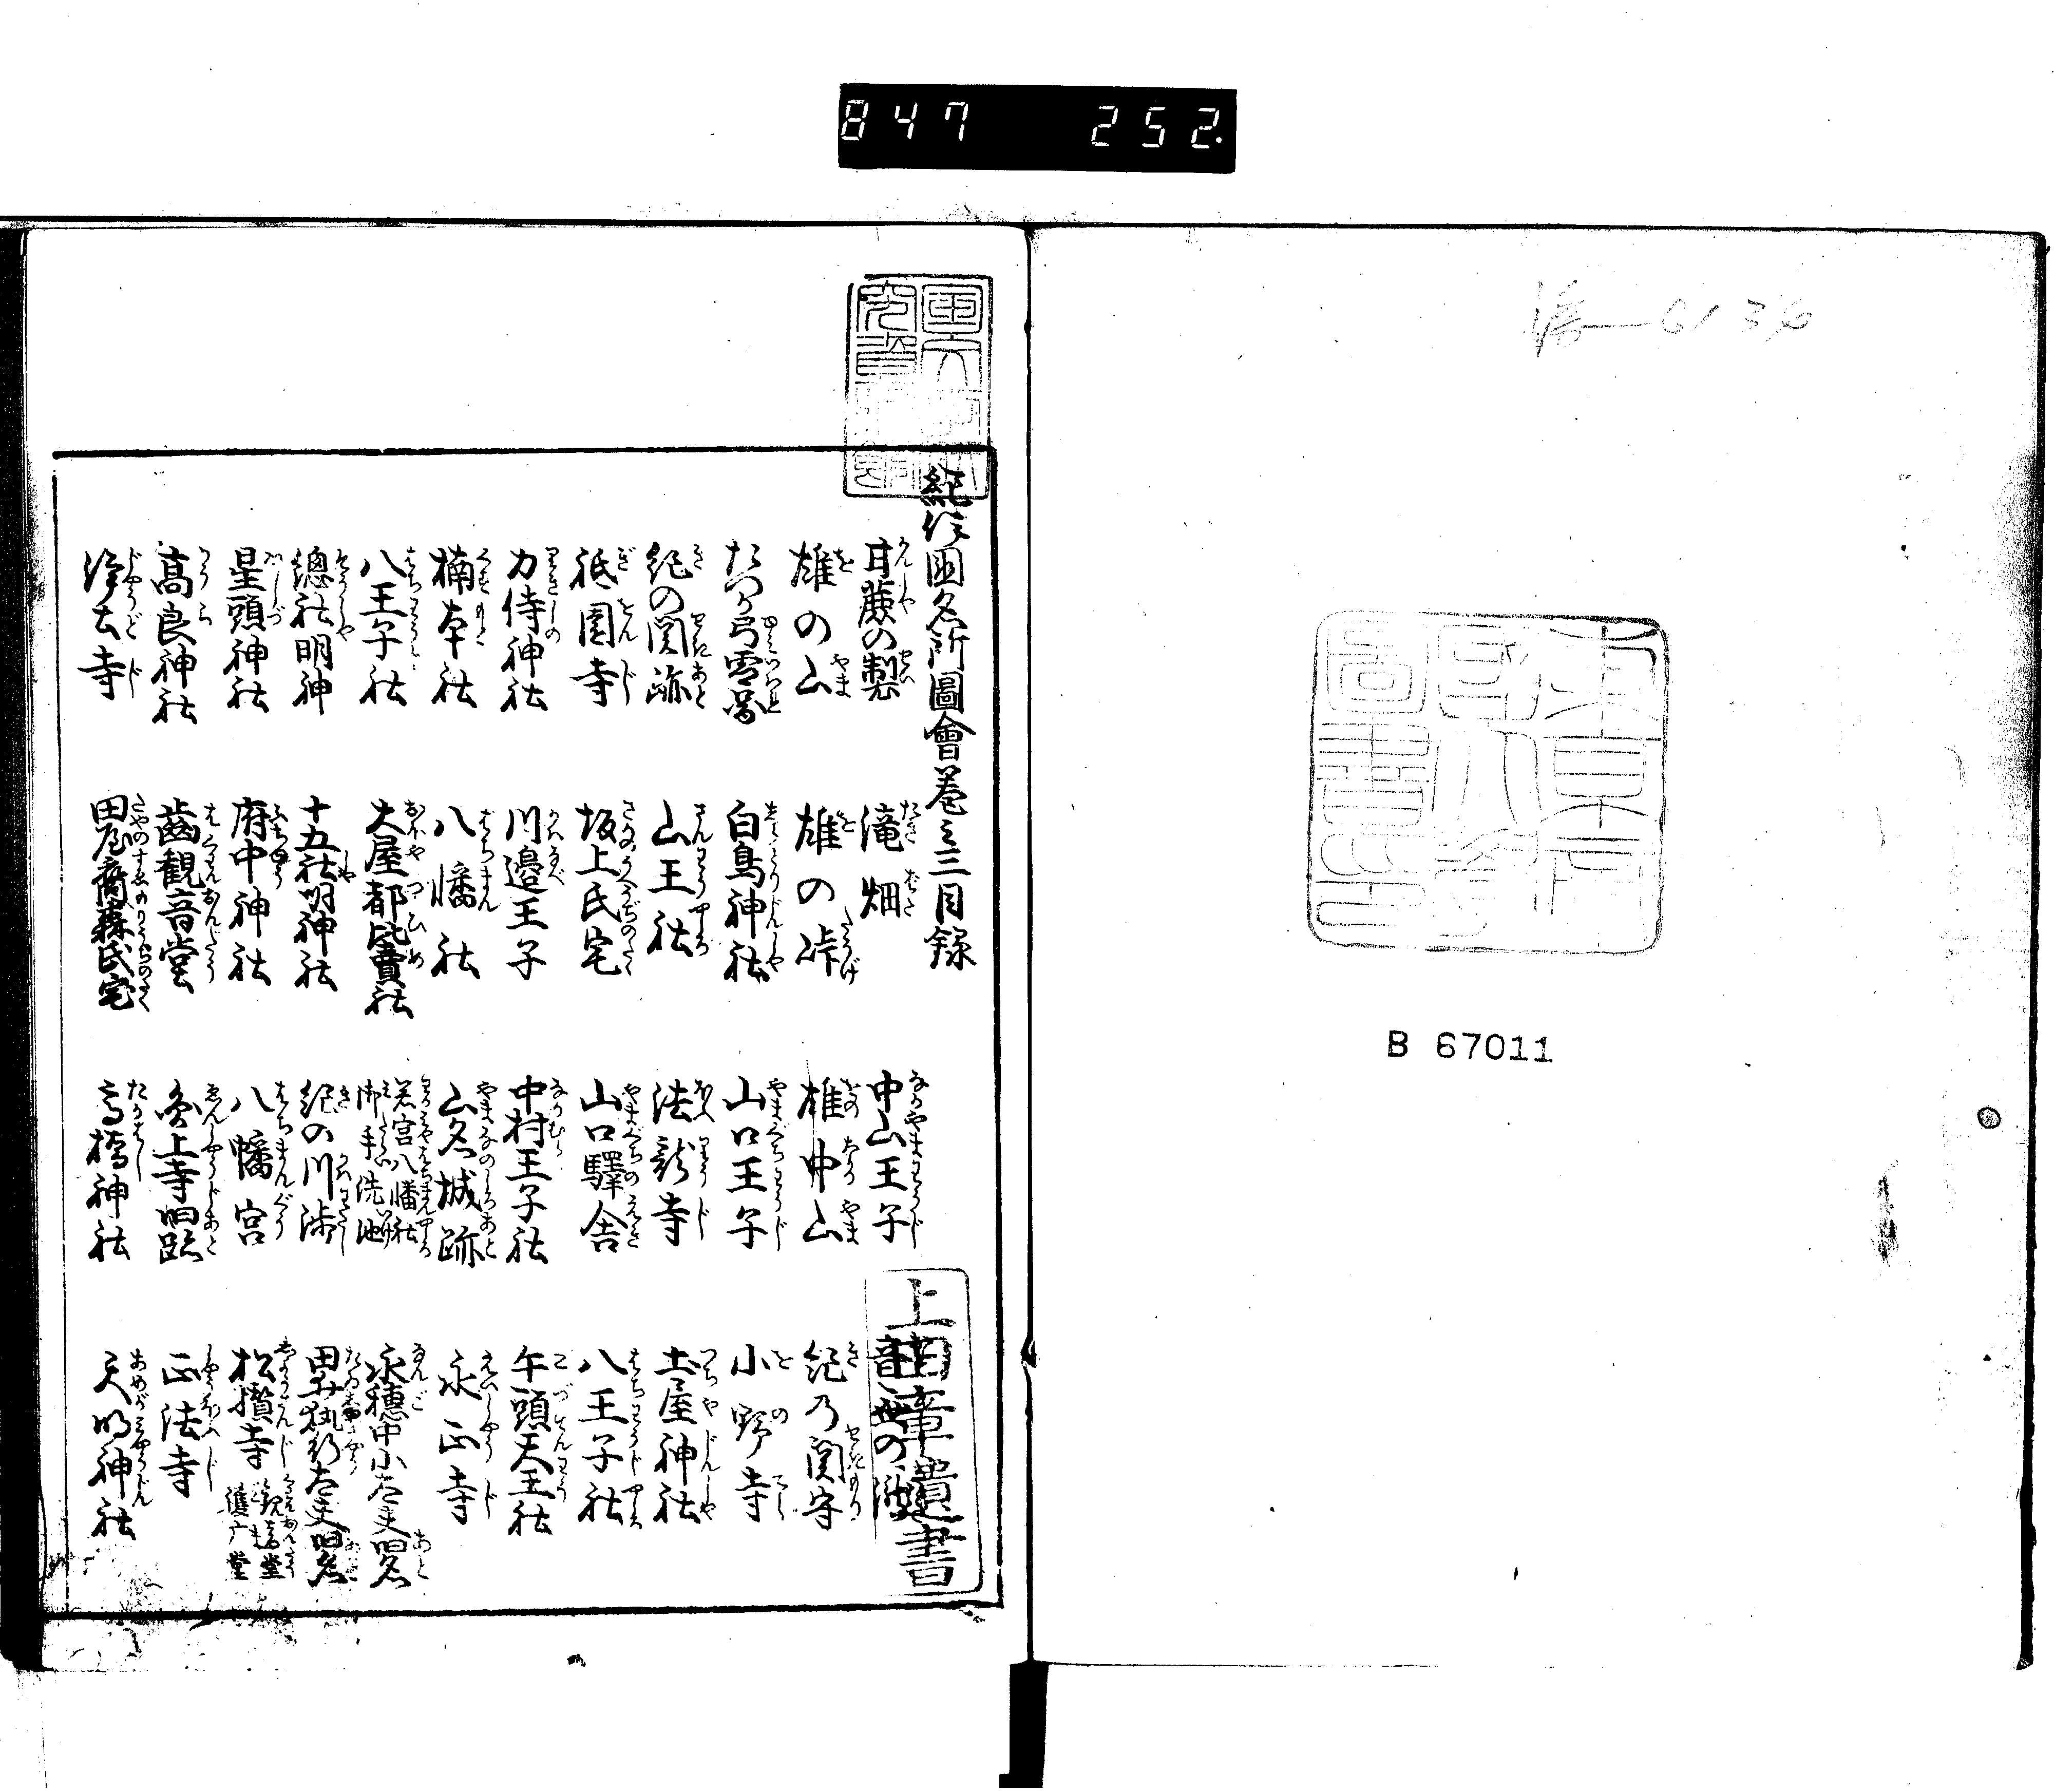 847 252
B 67011
紀伊国名所圖會巻之三目録
甘蔗の製
滝畑
中山王子
雄の山
雄の峠
雄中山
紀乃関守
白鳥神社
山口王子
小野寺
紀の関跡
山王社
法龍寺
土屋神社
祇園寺
坂上氏宅
山口驛舎
八王子社
力侍神社
川邉王子
中村王子社
午頭天王社
楠本社
八幡社
山名城跡
永正寺
八王子社
大屋都比賣社
若宮八幡社
御手洗池
永穂中小太夫旧名
總社明神
十五社明神社
紀の川渉
星頭神社
府中神社
八幡宮
松攅寺
観音堂
護广堂
高良神社
歯観音堂
正法寺
浄土寺
田屋裔森氏宅
高橋神社
天明神社
上田章遺書